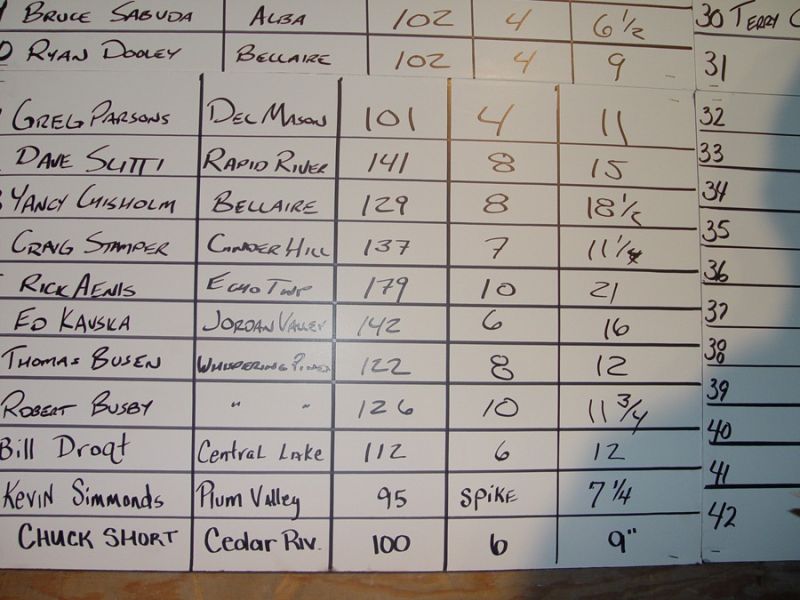 BRUCE SABUDA ALBA 102 4 6 1/2 30 TERRY
RYAN DOOLEY BELLAIRE 102 4 9 31
GREG PARSONS DEL MASON 101 4 11 32
DAVE SLITTI RAPID RIVER 141 8 15 33
YANCY CHISHOLM BELLAIRE 129 8 18 1/2 34
CRAIG STAMPER CINDER HILL 137 7 11 1/4 35
RICK AENIS ECHO TWP 179 10 21 36
ED KAVSKA JORDAN VALLEY 142 6 16 37
THOMAS BUSEN WHISPERING PINES 122 8 12 38
ROBERT BUSBY " " 126 10 11 3/4 39
Bill Droqt Central Lake 112 6 12 40
KEVIN SIMMONDS Plum Valley 95 SPIKE 7 1/4 41
CHUCK SHORT Cedar Riv. 100 6 9" 42